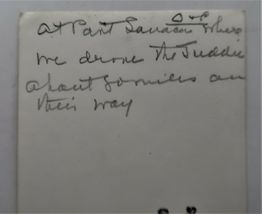 O & P
at Port Savacon where
we drove the Juddie
about 50 miles on
their way